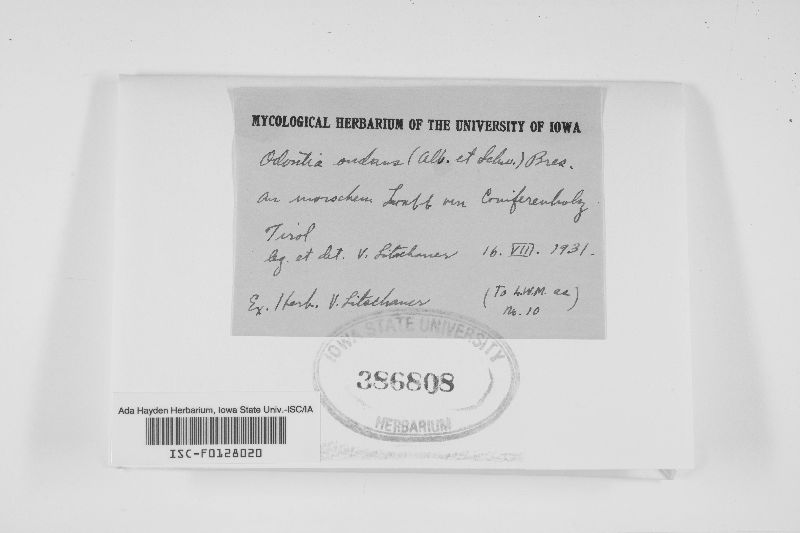 MYCOLOGICAL HERBARIUM OF THE UNIVERSITY OF IOWA
Odontia sudans (Alb. et Schw.) Bres.
An morschem von Coniferenholz.
Tirol
leg. et det. V. Litschauer 16. VIII. 1931.
Ex. Herb. V. Litschauer (To L.W.M. as
No. 10)
IOWA STATE UNIVERSITY
386808
HERBARIUM
Ada Hayden Herbarium, Iowa State Univ.-ISC/IA
ISC-F0128020